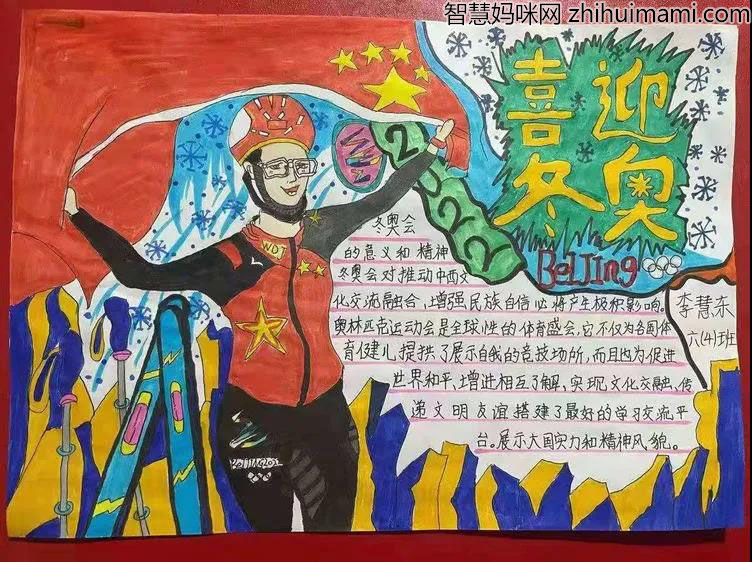 智慧妈咪网 zhihuimami.com
喜迎
冬奥
2022
BeIJIng
李慧东
六(4)班
冬奥会
的意义和精神
冬奥会对推动中西文
化交流融合，增强民族自信心将产生极积影响。
奥林匹克运动会是全球性的体育盛会，它不仅为各国体
育健儿提拱了展示自我的竞技场所，而且也为促进
世界和平，增进相互了解，实现文化交融，传
递文明友谊搭建了最好的学习交流平
台。展示大国实力和精神风貌。